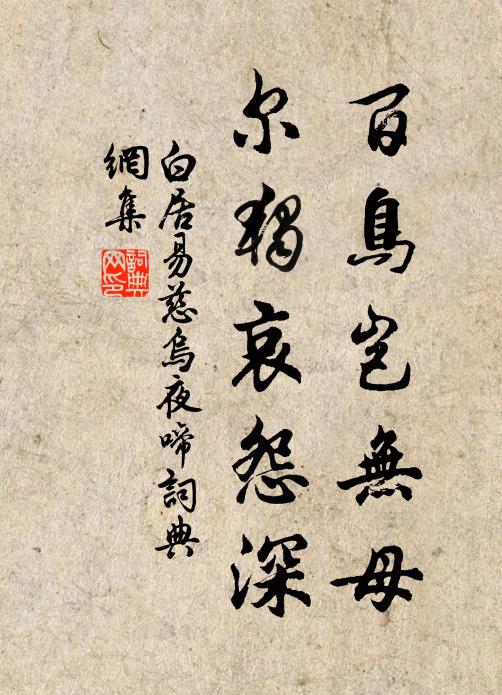 百鳥豈無母
尔獨哀怨深
白居易慈烏夜啼詞典
網集
詞典网印